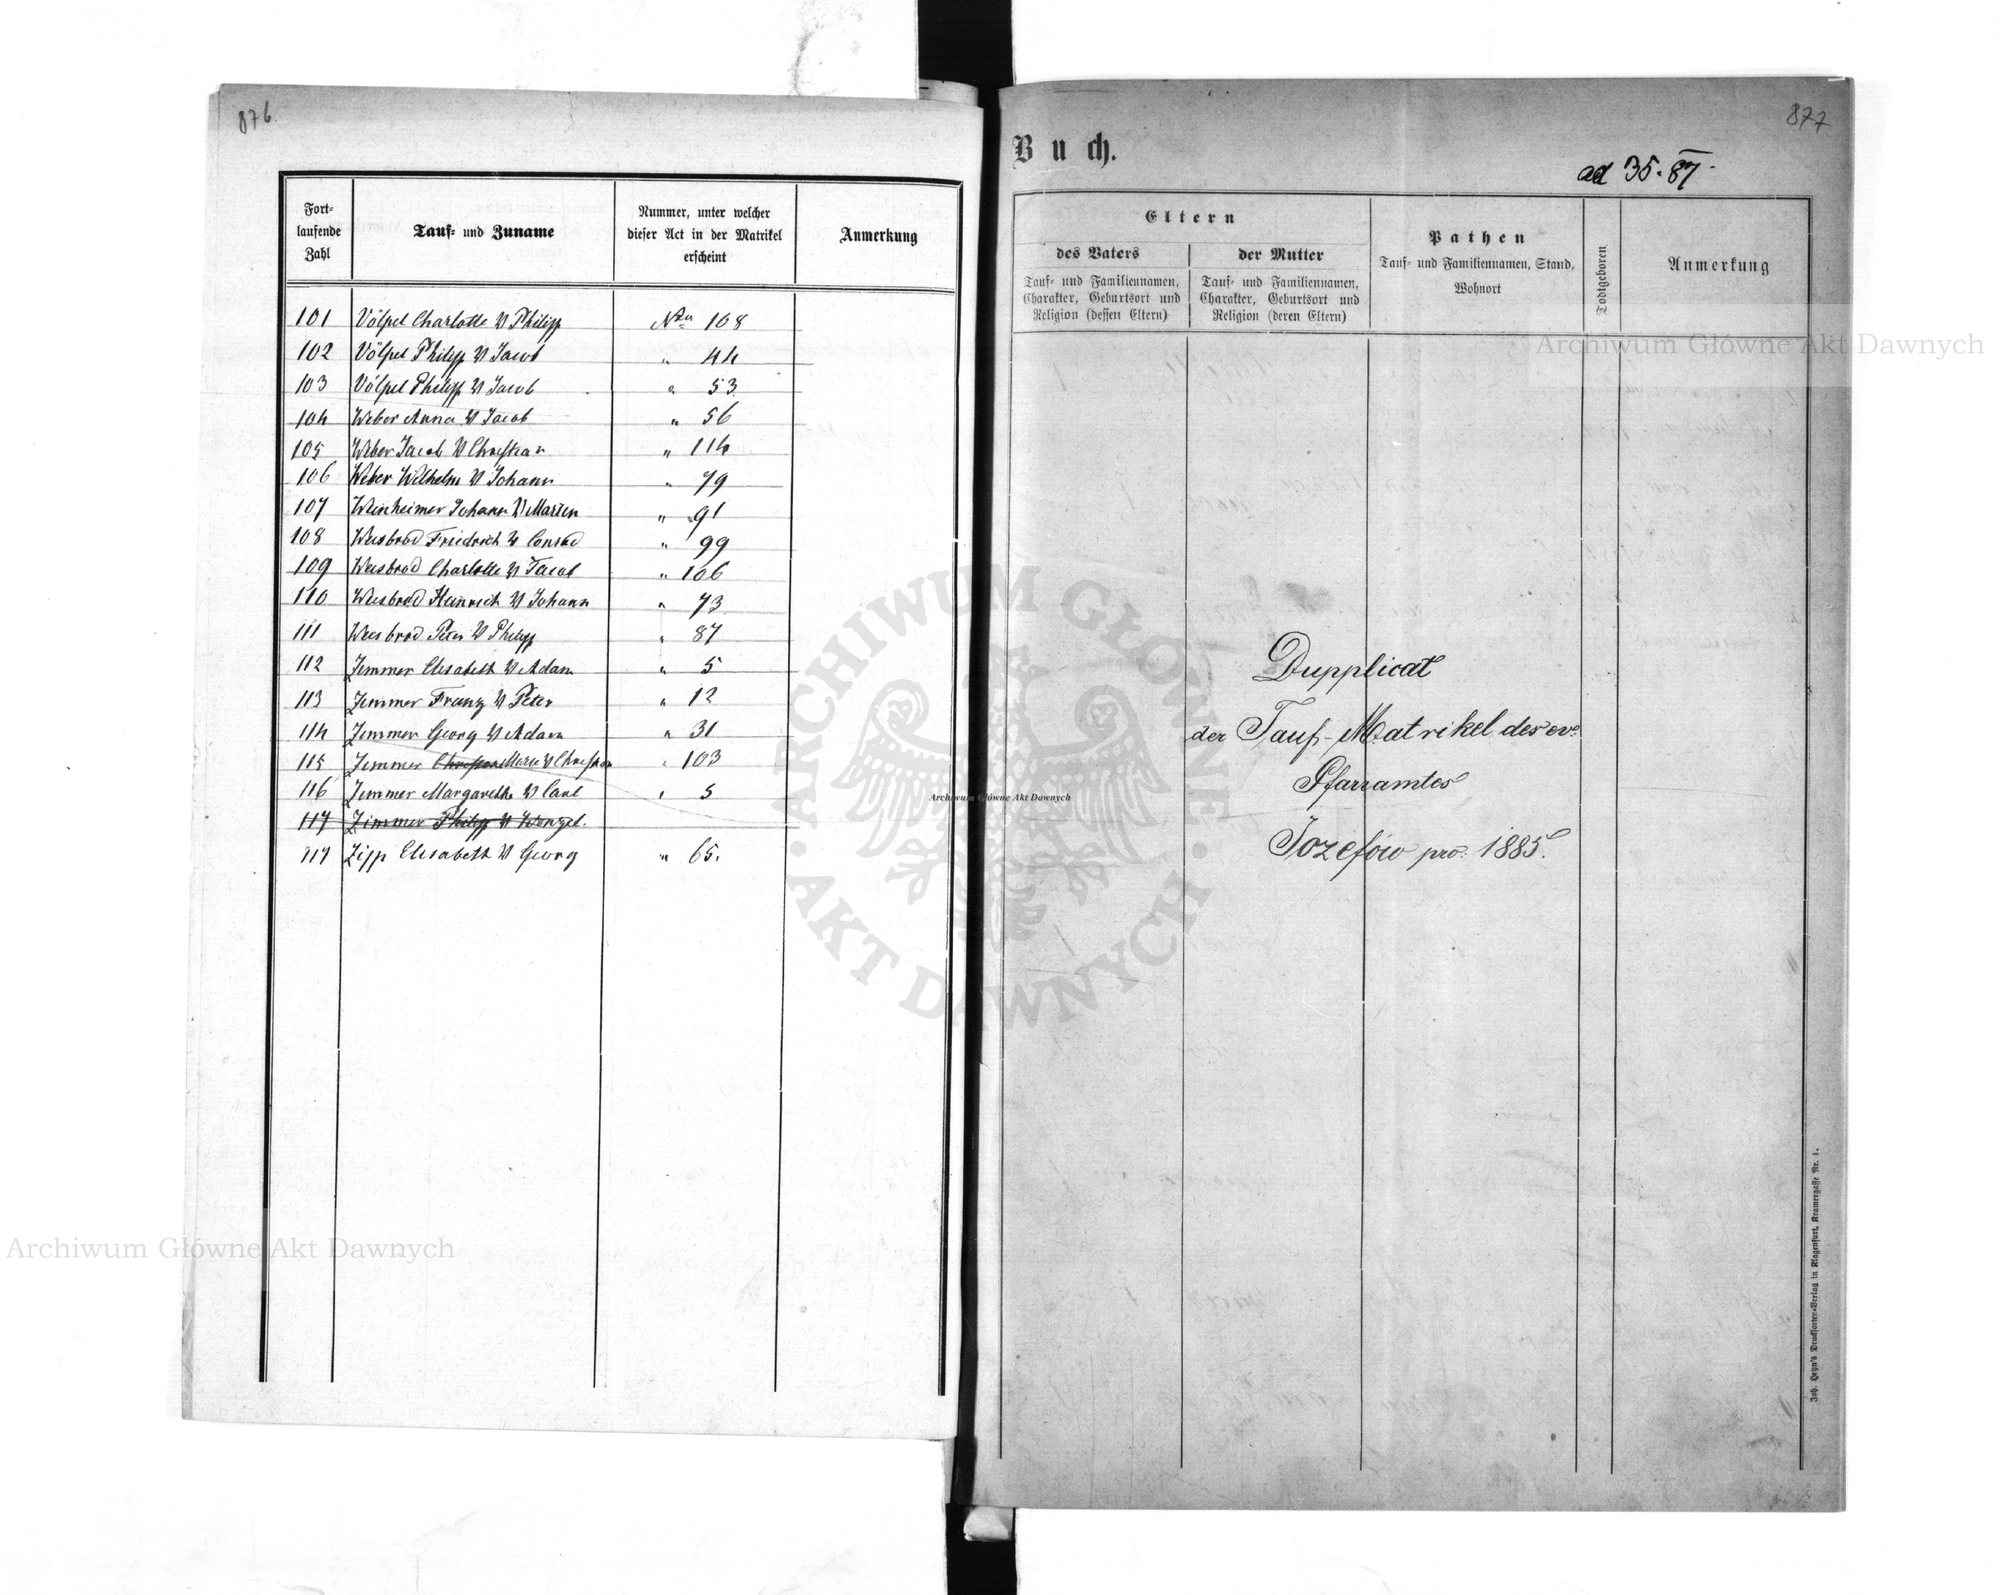 876
Fort-
laufende
Zahl
Tauf- und Zuname
Nummer, unter welcher
dieser Act in der Matrikel
erscheint
Anmerkung
101 Völpel Charlotte v Philipp Nro 108
102 Völpel Philipp v Jacob " 44
103 Völpel Philipp v Jacob " 53
104 Weber Anna v Jacob " 56
105 Weber Jacob v Christian " 114
106 Weber Wilhelm v Johann " 79
107 Weinheimer Johann v Martin " 91
108 Weisbrod Friedrich v Conrad " 99
109 Weisbrod Charlotte v Jacob " 106
110 Weisbrod Heinrich v Johann " 73
111 Weisbrod Peter v Philipp " 87
112 Zimmer Elisabeth v Adam " 5
113 Zimmer Franz v Peter " 12
114 Zimmer Georg v Adam " 31
115 Zimmer Christian Marie v Christian " 103
116 Zimmer Margarethe v Carl " 5
117 Zimmer Philipp v Wenzel.
117 Zipp Elisabeth v Georg " 65.
877
Buch.
ad 35.87
Eltern
des Vaters
Tauf- und Familiennamen,
Charakter, Geburtsort und
Religion (dessen Eltern)
der Mutter
Tauf- und Familiennamen,
Charakter, Geburtsort und
Religion (deren Eltern)
Pathen
Tauf- und Familiennamen, Stand,
Wohnort
Todtgeboren
Anmerkung
Dupplicat
der Tauf-Matrikel des ev.
Pfarramtes
Józefów pro: 1885.
Joh. Heyn's Drucksorten-Verlag in Klagenfurt, Kramergasse Nr. 4.
Archiwum Główne Akt Dawnych
Archiwum Główne Akt Dawnych
Archiwum Główne Akt Dawnych
ARCHIWUM GŁÓWNE
· AKT DAWNYCH ·